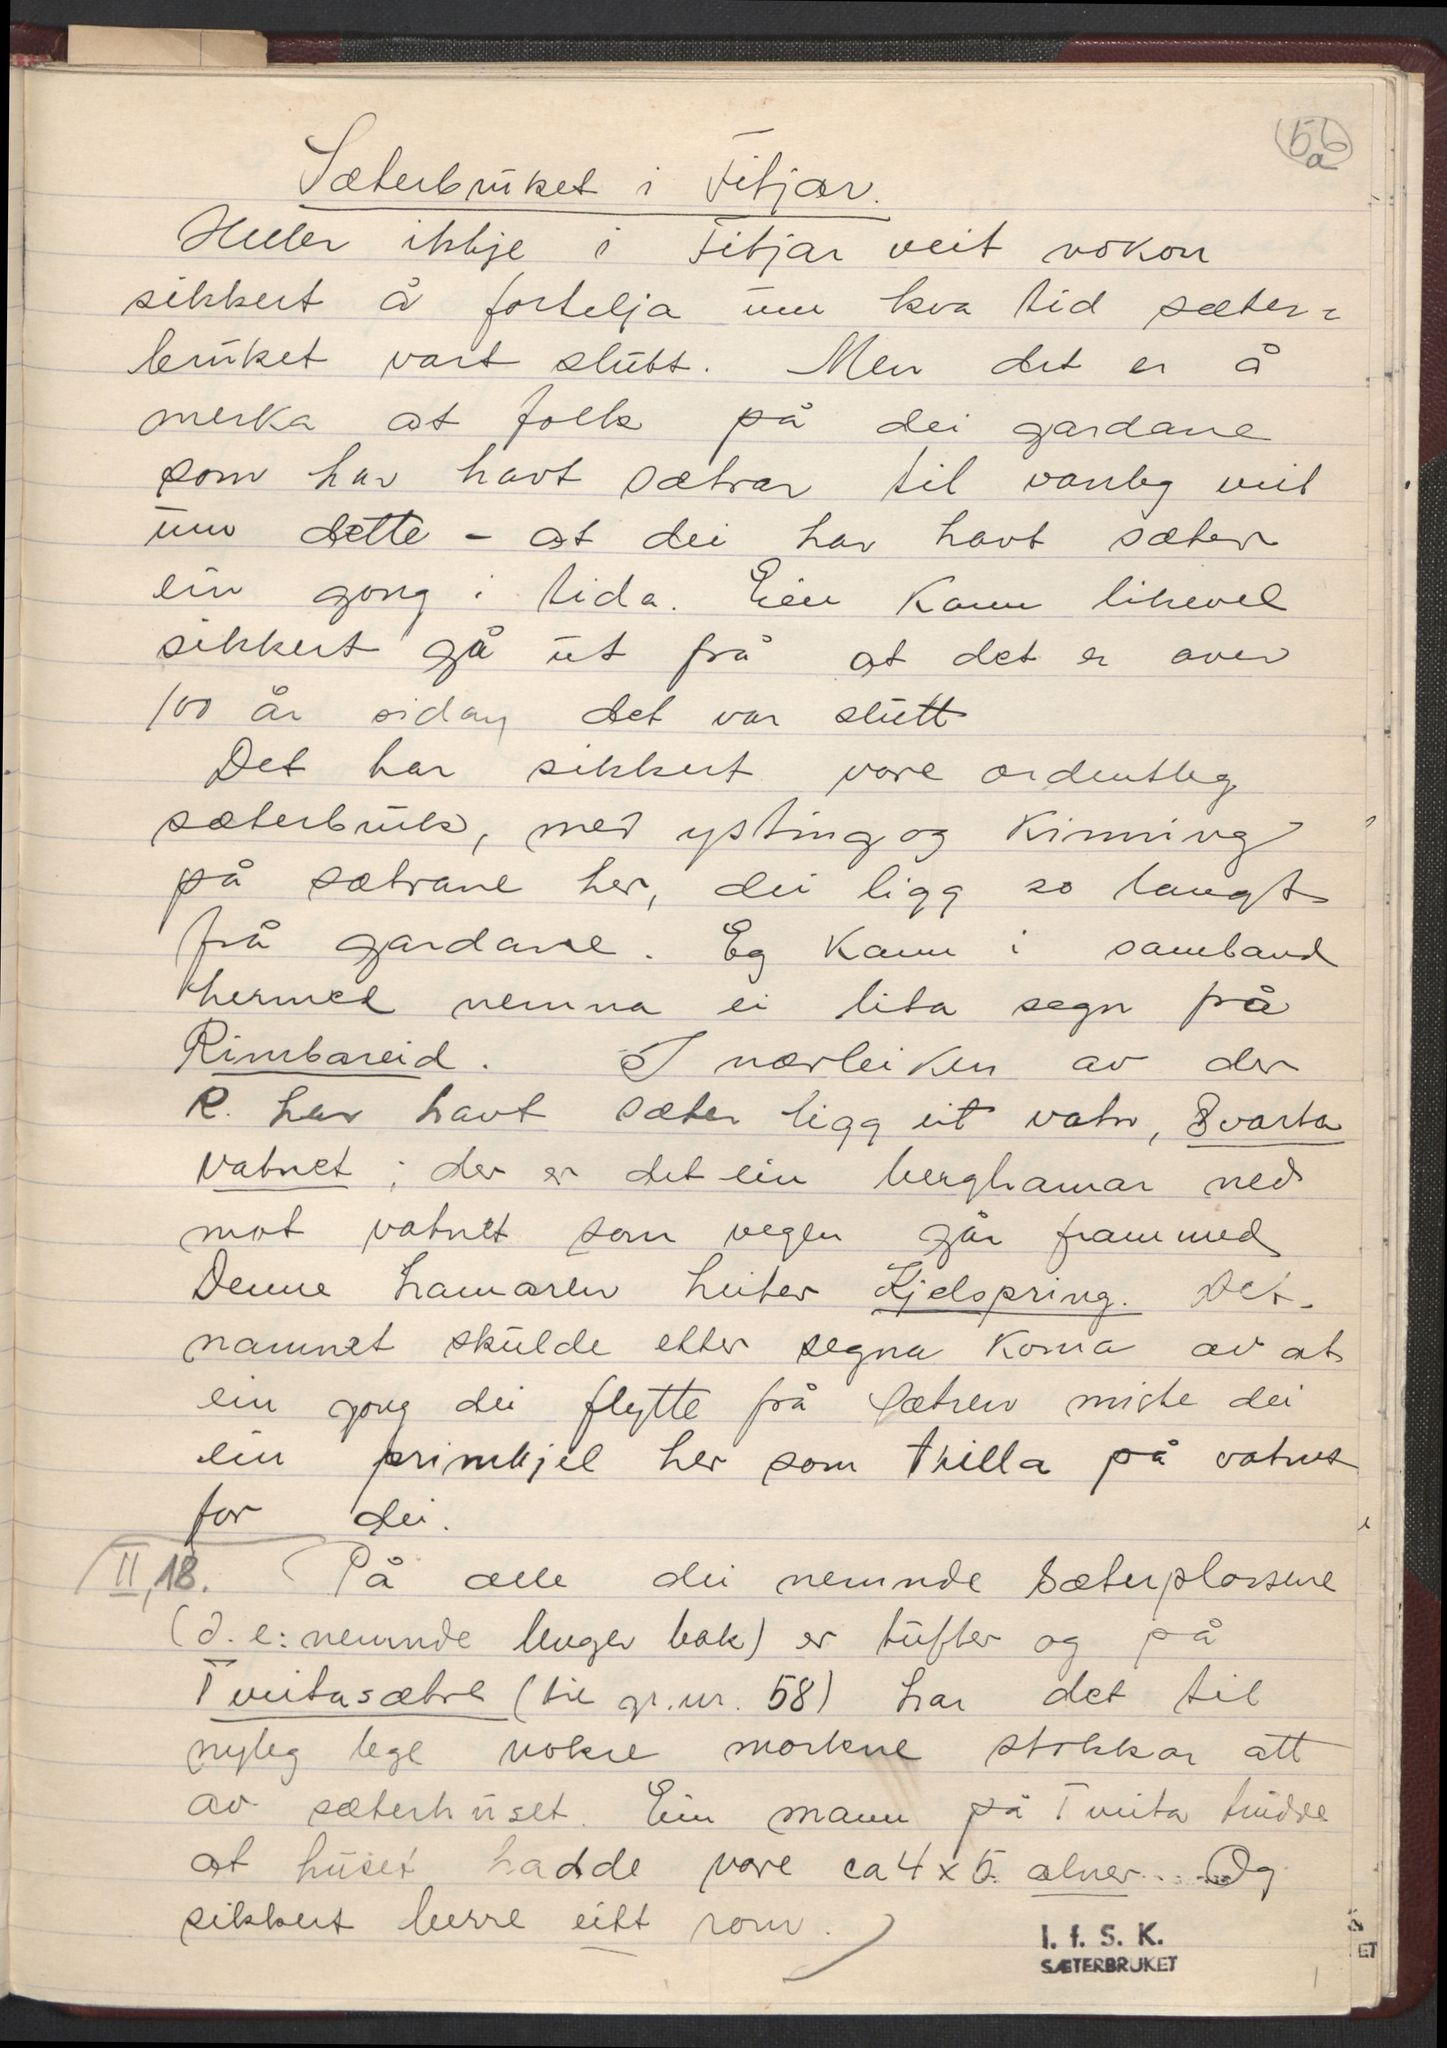 56
a
Sæterbruket i Fitjar.
Heller ikkje i Fitjar veit nokon
sikkert å fortelja um kva tid sæter=
bruket vart slutt. Men det er å
merka at folk på dei gardane
som har havt sætrar til vanleg veit
um dette - at dei har havt sæter
ein gong i tida. Ein kann likevel
sikkert gå ut frå at det er over
100 år sidan det var slutt
Det har sikkert vore ordentleg
sæterbruk, med ysting og kinning
på sætrane her, dei ligg so langt
frå gardane. Eg kann i samband
hermed nemna ei lita segn frå
Rimbareid. I nærleiken av der
R. har havt sæter ligg eit vatn, Svarta
vatnet; der er det ein berghamar ned
mot vatnet som vegen går frammed
Denne hamaren heiter Kjelspring. Det
namnet skulde etter segna koma av at
ein gong dei flytte frå sætren miste dei
ein primkjel her som trilla på vatnet
for dei.
II, 18. På alle dei nemnde sæterplassene
(d.e: nemnde lenger bak) er tufter og på
Tveitasætre (til gr.nr. 58) har det til
nyleg lege nokre morkne stokkar att
av sæterhuset. Ein mann på Tveita trudde
at huset hadde vore ca 4 x 5 alner.... Og
sikkert berre eitt rom.
I. f. S. K.
SÆTERBRUKET
ET